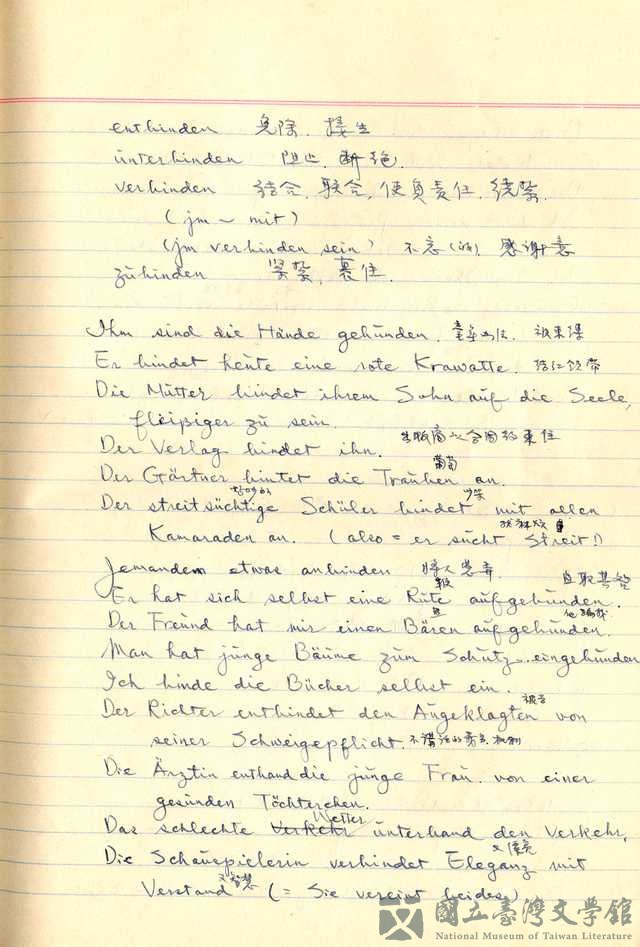 entbinden 免除. 接生
unterbinden 阻止. 断绝.
verbinden 结合, 联合, 使负责任, 绕紮.
(jm ~ mit)
(jm verbinden sein) 不忘(的), 感谢意
zubinden 紧紮, 裹住.
Ihm sind die Hände gebunden. 被束缚
Er bindet heute eine rote Krawatte. 结红领带
Die Mutter bindet ihrem Sohn auf die Seele,
fleißiger zu sein.
Der Verlag bindet ihn. 出版商以合同约束住
葡萄
Der Gärtner bintet die Trauben an.
Der streitsüchtige Schüler bindet mit allen
Kamaraden an. (also = er sucht Streit!)
Jemandem etwas anbinden
Er hat sich selbst eine Rute aufgebunden. 自取其
Der Freund hat mir einen Bären aufgebunden.
Man hat junge Bäume zum Schutz eingebunden
Ich binde die Bücher selbst ein.
被告
Der Richter entbindet den Angeklagten von
seiner Schweigepflicht. 不讲话的
Die Ärztin entband die junge Frau von einer
gesunden Töchterchen.
Wetter
Das schlechte Verkehr unterband den Verkehr.
Die Schauspielerin verbindet Eleganz mit
Verstand 智慧 (= Sie vereint beides)
國立臺灣文學館
National Museum of Taiwan Literature